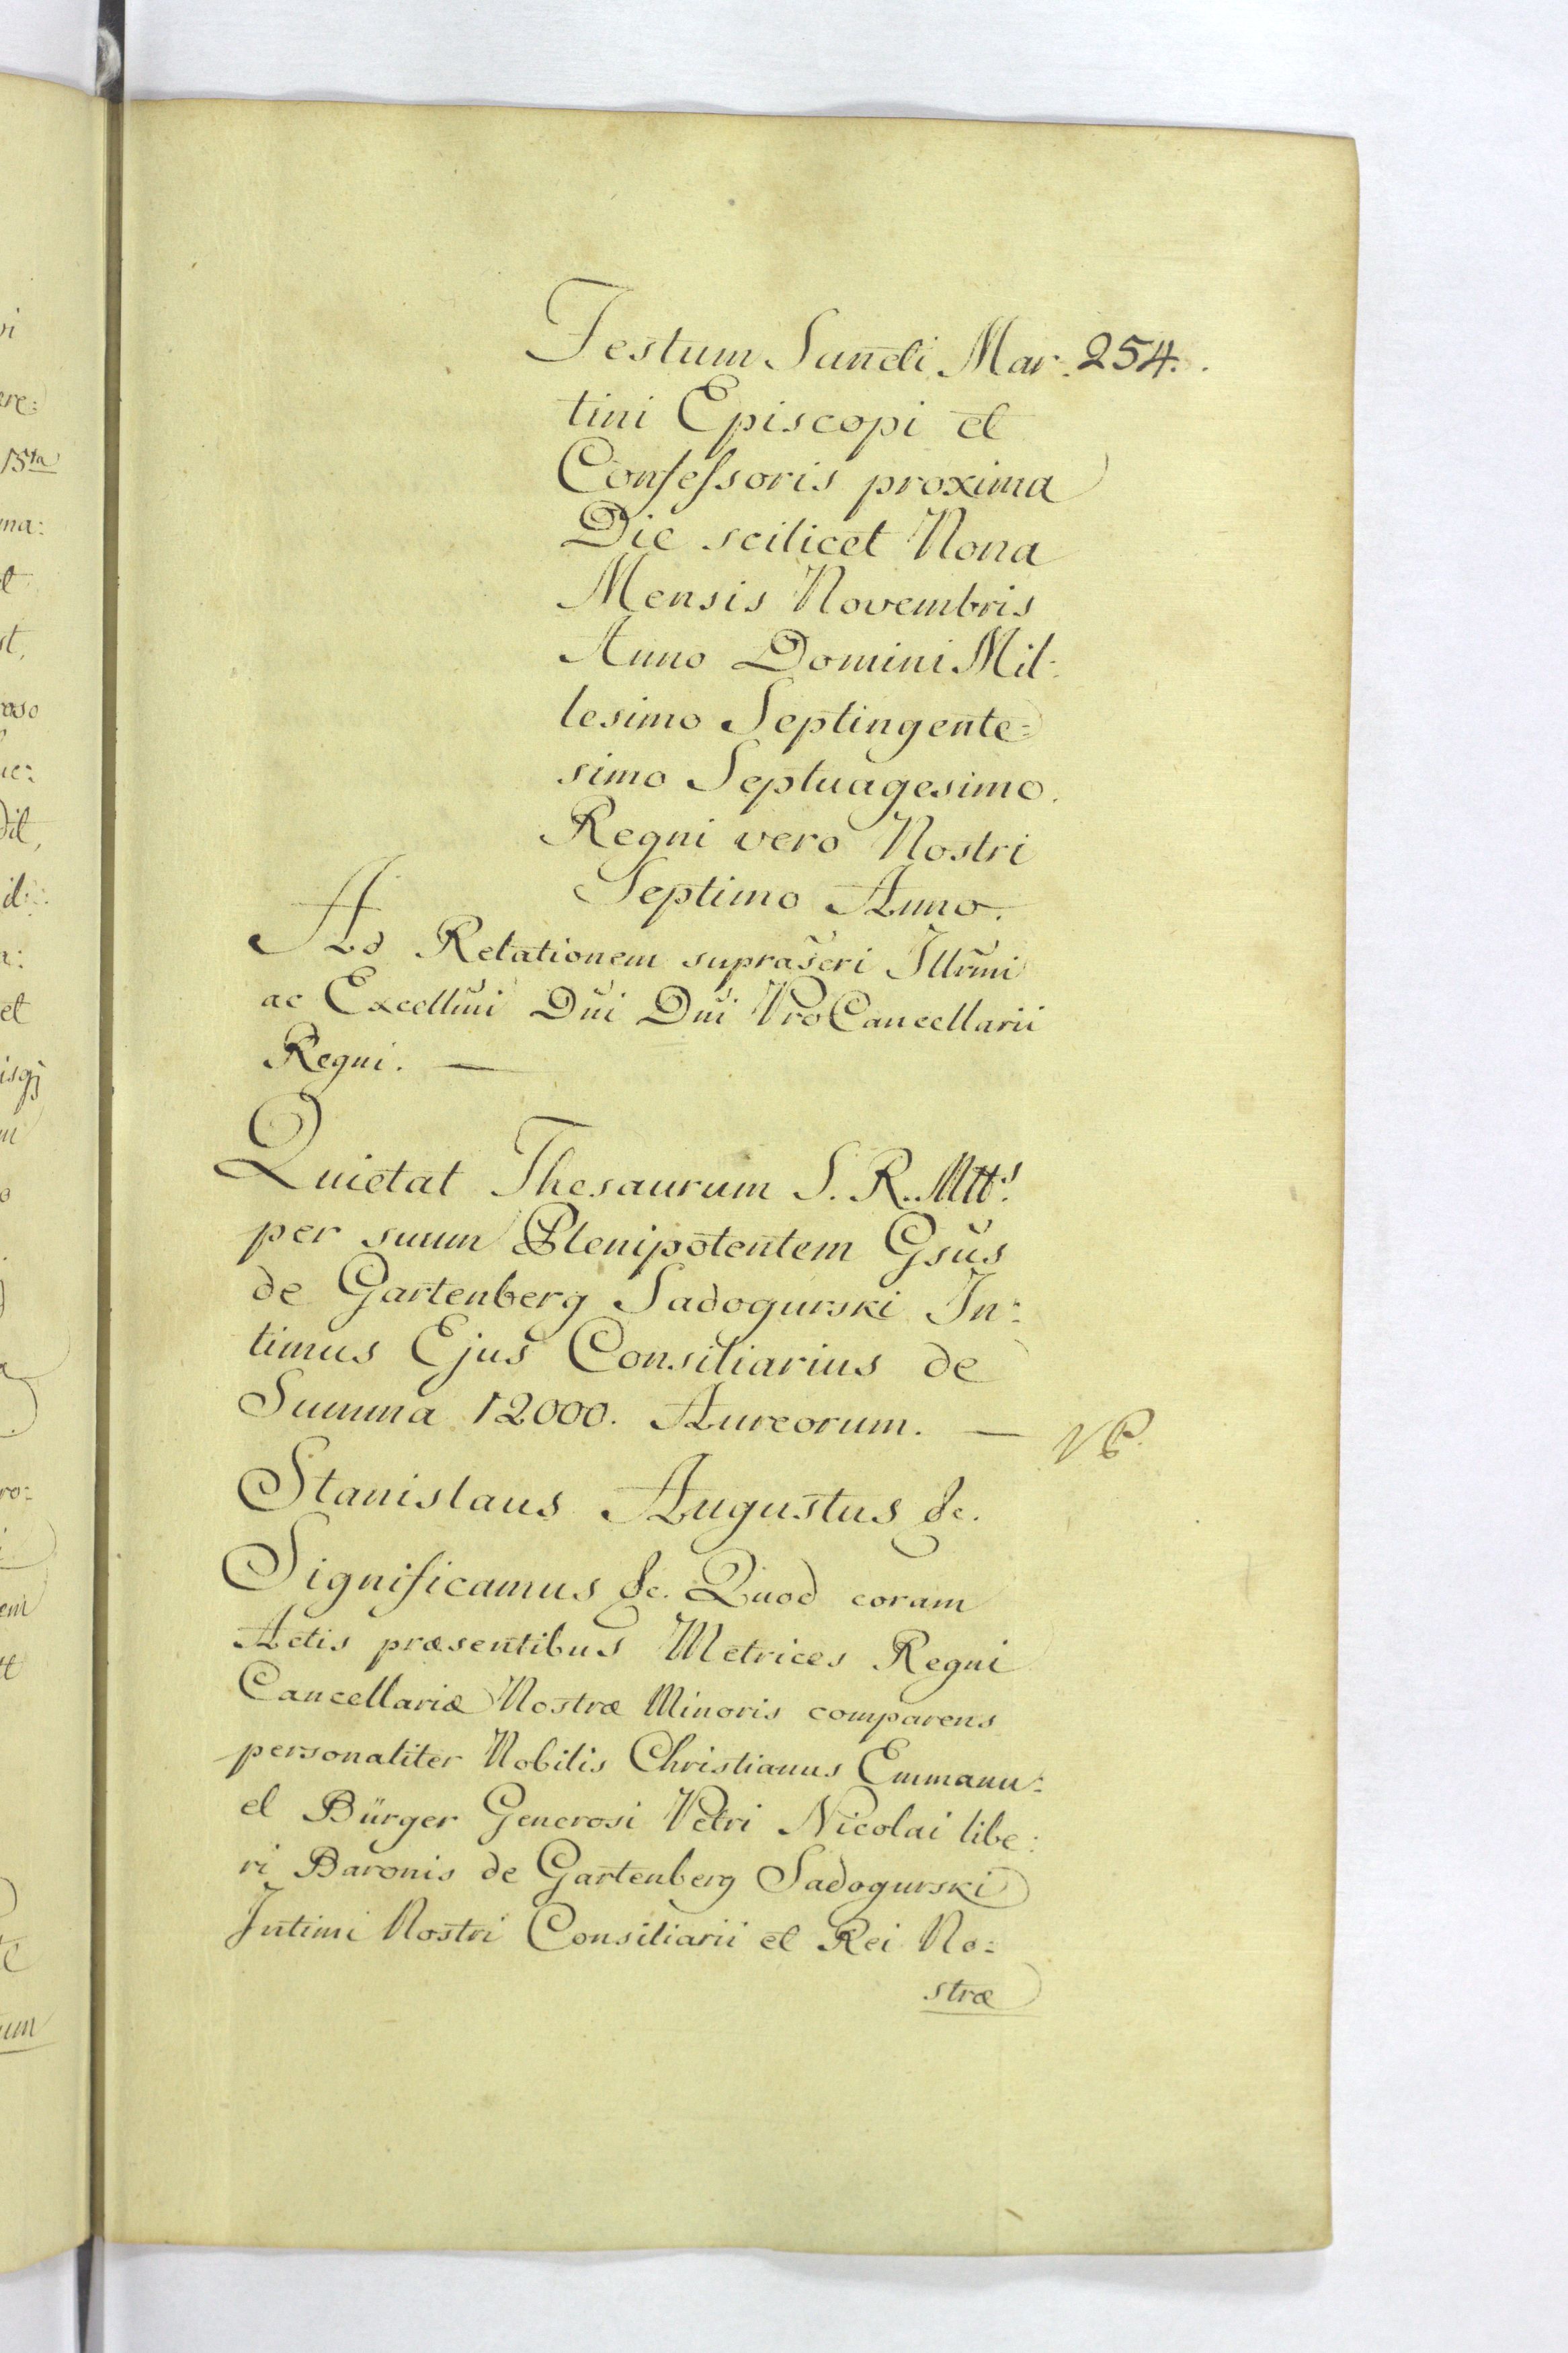 254.
Festum Sancti Mar:
tini Episcopi et
Confessoris proxima
Die scilicet Nona
Mensis Novembris
Anno Domini Mil:
lesimo Septingente=
simo Septuagesimo.
Regni vero Nostri
Septimo Anno.
Ad Relationem suprascri Illrmi
ac Excellmi Dni Dni ProCancellarii
Regni. —
Quietat Thesaurum S. R. Mttis
per suum Plenipotentem Gsus
de Gartenberg Sadogurski In:
timus Ejus Consiliarius de
Summa 12000. Aureorum. —
Stanislaus Augustus &c.
Significamus &c. Quod coram
Actis præsentibus Metrices Regni
Cancellariæ Nostræ Minoris comparens
personaliter Nobilis Christianus Emmanu:
el Bürger Generosi Petri Nicolai libe:
ri Baronis de Gartenberg Sadogurski
Intimi Nostri Consiliarii et Rei No=
stræ